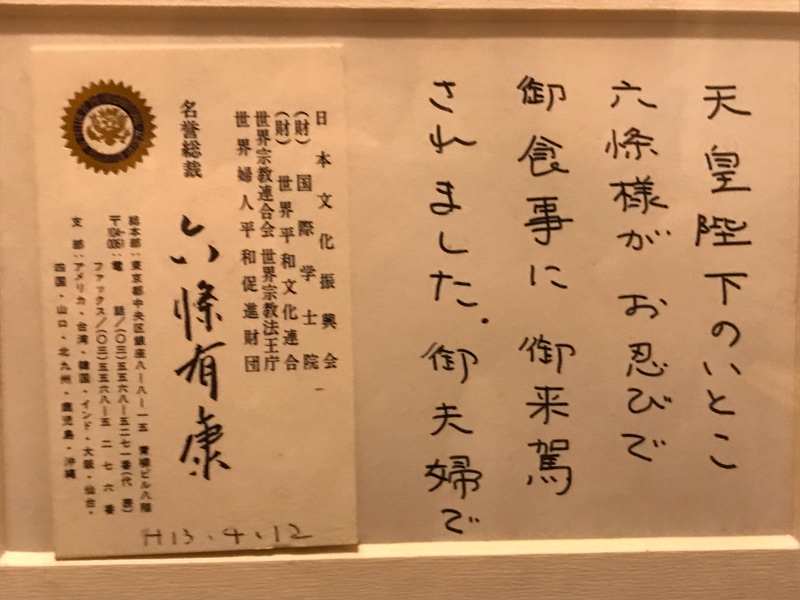 天皇陛下のいとこ
六條様が お忍びで
御食事に 御来駕
されました。御夫婦で
日本文化振興会
(財)国際学士院
(財)世界平和文化連合
世界宗教連合会 世界宗教法王庁
世界婦人平和促進財団
名誉総裁
六條有康
総本部:東京都中央区銀座八-八-一五 青柳ビル八階
〒104-0061 電話/(〇三)五五六八-五二七一番(代表)
ファックス/(〇三)五五六八-五二七六番
支部:アメリカ・台湾・韓国・インド・大阪・仙台・
四国・山口・北九州・鹿児島・沖縄
H13.4.12